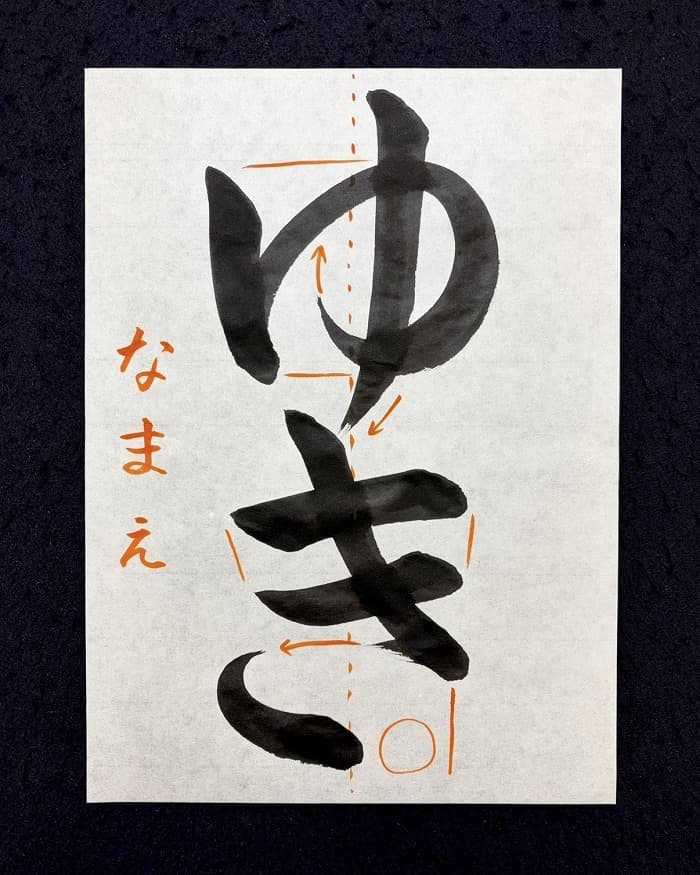 ゆき
なまえ